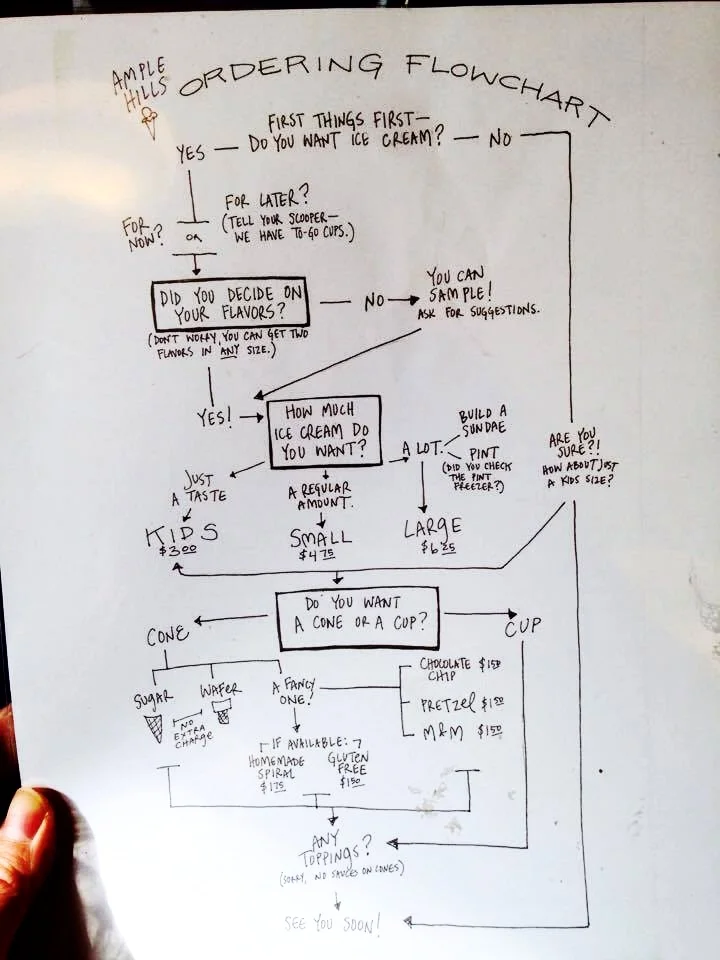 AMPLE
HILLS
ORDERING FLOWCHART
FIRST THINGS FIRST—
DO YOU WANT ICE CREAM?
YES
NO
FOR
NOW?
OR
FOR LATER?
(TELL YOUR SCOOPER—
WE HAVE TO-GO CUPS.)
DID YOU DECIDE ON
YOUR FLAVORS?
NO
YOU CAN
SAMPLE!
ASK FOR SUGGESTIONS.
(DON'T WORRY, YOU CAN GET TWO
FLAVORS IN ANY SIZE.)
YES!
HOW MUCH
ICE CREAM DO
YOU WANT?
A LOT.
BUILD A
SUNDAE
PINT
(DID YOU CHECK
THE PINT
FREEZER?)
ARE YOU
SURE?!
HOW ABOUT JUST
A KIDS SIZE?
JUST
A TASTE
A REGULAR
AMOUNT.
KIDS
$3.00
SMALL
$4.75
LARGE
$6.25
DO YOU WANT
A CONE OR A CUP?
CONE
CUP
SUGAR
WAFER
NO
EXTRA
CHARGE
A FANCY
ONE!
CHOCOLATE $1.50
CHIP
PRETZEL $1.50
M&M $1.50
IF AVAILABLE:
HOMEMADE
SPIRAL
$1.75
GLUTEN
FREE
$1.50
ANY
TOPPINGS?
(SORRY, NO SAUCES ON CONES)
SEE YOU SOON!